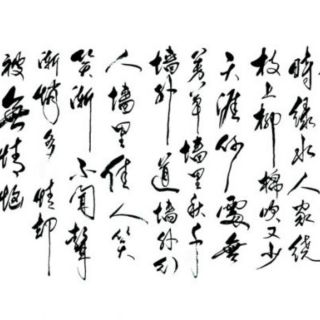 時緑水人家繞
枝上柳棉吹又少
天涯何處無
芳草墙里秋千
墙外道墙外行
人墙里佳人笑
笑漸不聞聲
漸悄多情却
被無情惱